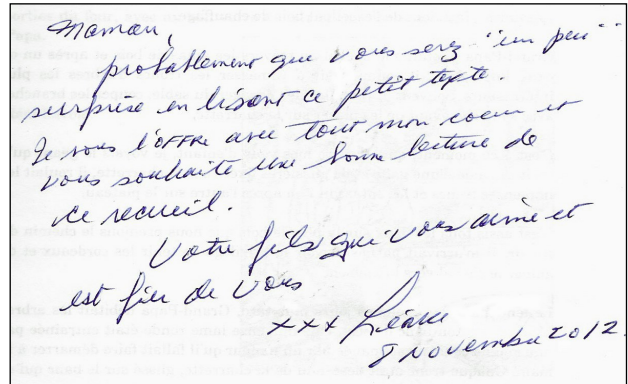 Maman,
probablement que vous serez "un peu"
surprise en lisant ce petit texte.
Je vous l'offre avec tout mon coeur et
vous souhaite une bonne lecture de
ce recueil.
Votre fils qui vous aime et
est fier de vous
xxx
8 Novembre 2012.